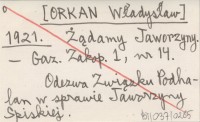 [ORKAN Władysław]
1921. Żądamy Jaworzyny.
— Gaz. Zakop. 1, nr 14.
Odezwa Związku Podha-
lan w sprawie Jaworzyny
Spiskiej.